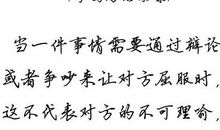 当一件事情需要通过辩论
或者争吵来让对方屈服时,
这不代表对方的不可理喻,